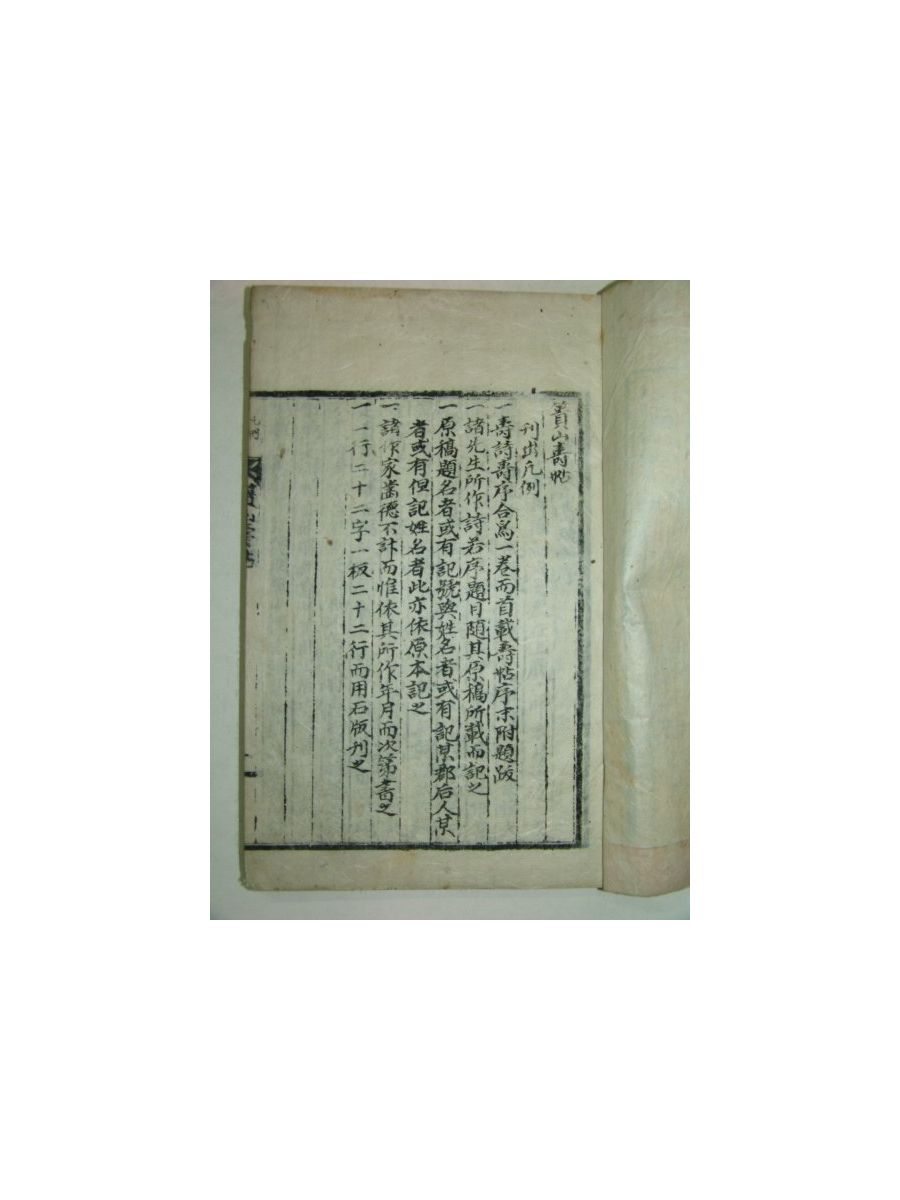 蕢山壽帖
刊出凡例
一 壽詩壽序合爲一卷而首載壽帖序末附題跋
一 諸先生所作詩若序題目隨其原稿所載而記之
一 原稿題名者或有記號與姓名者或有記某郡后人某
者或有但記姓名者此亦依原本記之
一 諸作家齒德不計而惟依其所作年月而次第書之
一 一行二十二字一板二十二行而用石版刊之